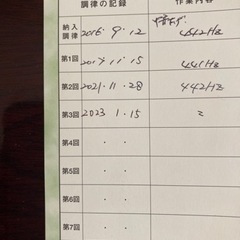 調律の記録 作業内容
納入調律 2016.9.12 442Hz
第1回 2017.11.15 441Hz
第2回 2021.11.28 442Hz
第3回 2023.1.15 〃
第4回 . .
第5回 . .
第6回 . .
第7回 . .